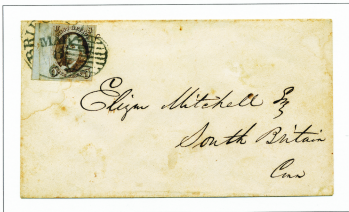 Elizur Mitchell Esq
South Britain
Conn